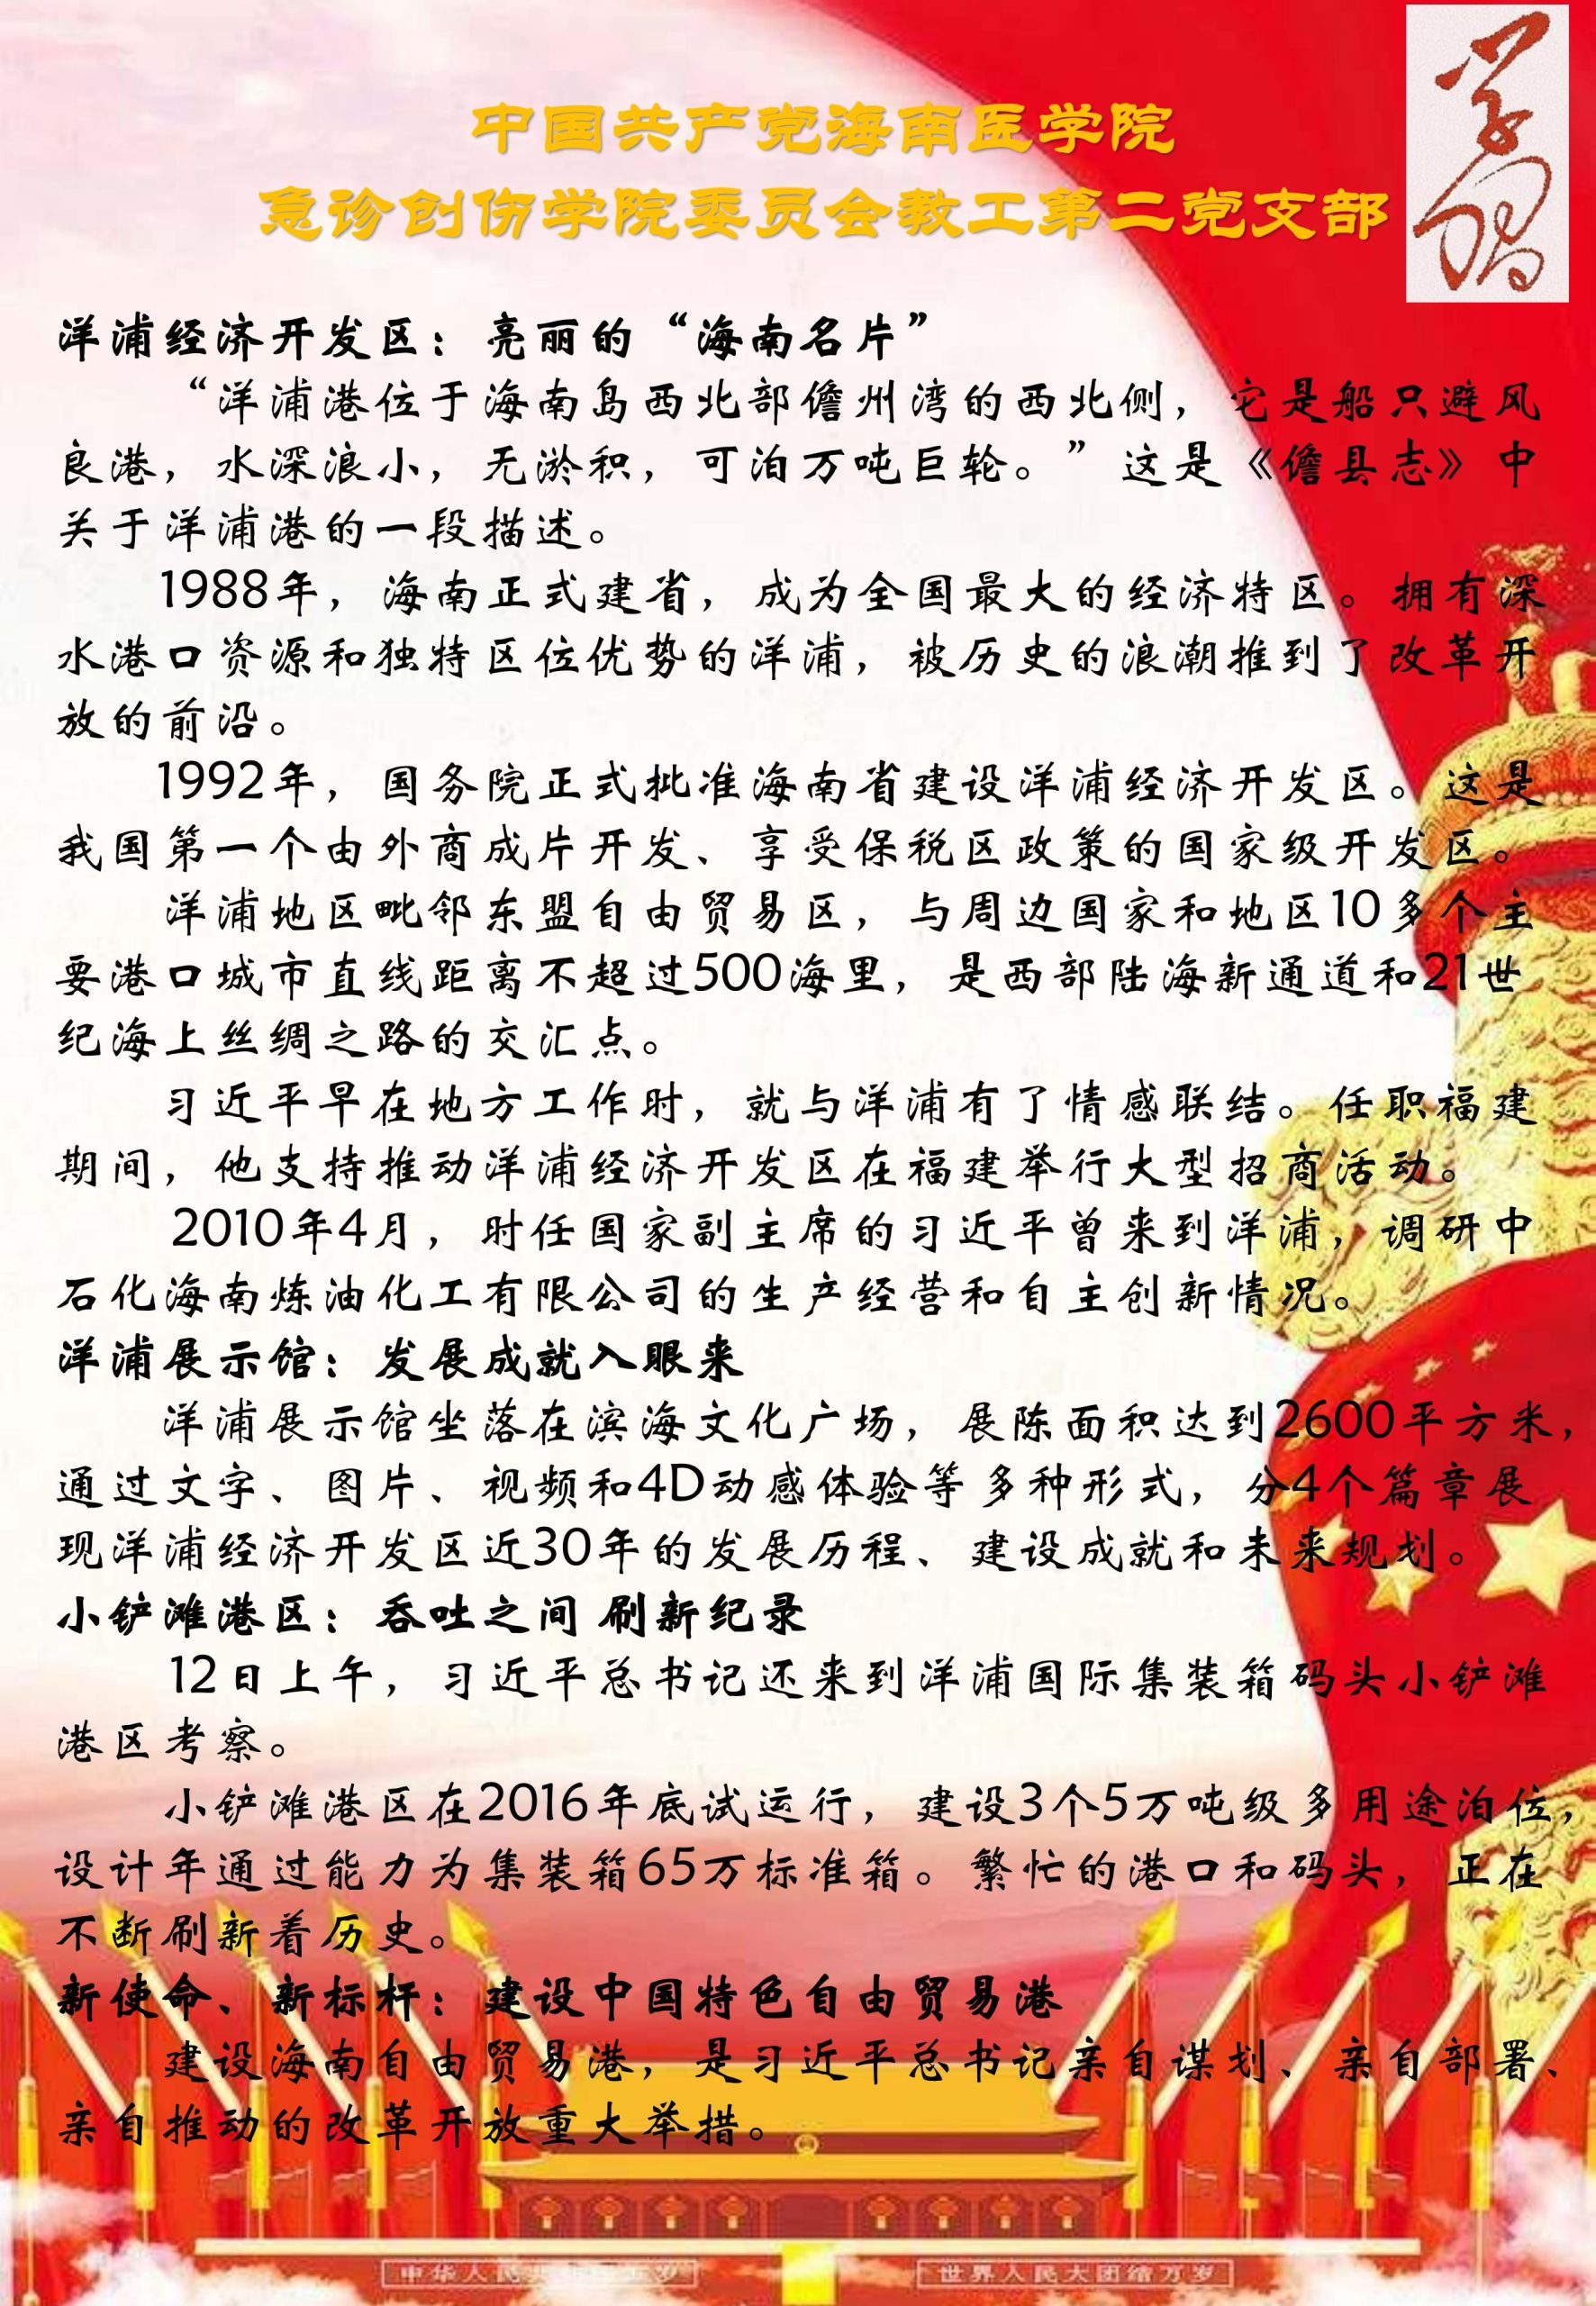 中国共产党海南医学院
急诊创伤学院委员会教工第二党支部
学习
洋浦经济开发区：亮丽的“海南名片”
“洋浦港位于海南岛西北部儋州湾的西北侧，它是船只避风
良港，水深浪小，无淤积，可泊万吨巨轮。”这是《儋县志》中
关于洋浦港的一段描述。
1988年，海南正式建省，成为全国最大的经济特区。拥有深
水港口资源和独特区位优势的洋浦，被历史的浪潮推到了改革开
放的前沿。
1992年，国务院正式批准海南省建设洋浦经济开发区。这是
我国第一个由外商成片开发、享受保税区政策的国家级开发区。
洋浦地区毗邻东盟自由贸易区，与周边国家和地区10多个主
要港口城市直线距离不超过500海里，是西部陆海新通道和21世
纪海上丝绸之路的交汇点。
习近平早在地方工作时，就与洋浦有了情感联结。任职福建
期间，他支持推动洋浦经济开发区在福建举行大型招商活动。
2010年4月，时任国家副主席的习近平曾来到洋浦，调研中
石化海南炼油化工有限公司的生产经营和自主创新情况。
洋浦展示馆：发展成就入眼来
洋浦展示馆坐落在滨海文化广场，展陈面积达到2600平方米，
通过文字、图片、视频和4D动感体验等多种形式，分4个篇章展
现洋浦经济开发区近30年的发展历程、建设成就和未来规划。
小铲滩港区：吞吐之间 刷新纪录
12日上午，习近平总书记还来到洋浦国际集装箱码头小铲滩
港区考察。
小铲滩港区在2016年底试运行，建设3个5万吨级多用途泊位，
设计年通过能力为集装箱65万标准箱。繁忙的港口和码头，正在
不断刷新着历史。
新使命、新标杆：建设中国特色自由贸易港
建设海南自由贸易港，是习近平总书记亲自谋划、亲自部署、
亲自推动的改革开放重大举措。
中华人民共和国万岁
世界人民大团结万岁